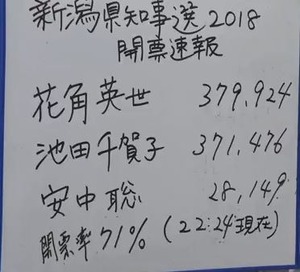 新潟県知事選2018
開票速報
花角英世 379,924
池田千賀子 371,476
安中聡 28,149
開票率71% (22:24現在)